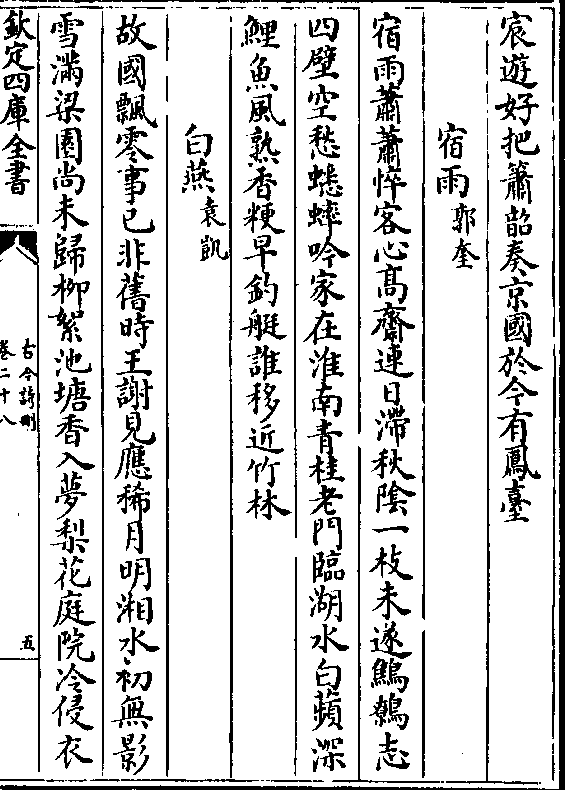 宸遊好把簫韶奏京國於今有鳳臺
宿雨郭奎
宿雨蕭蕭悴客心高齋連日滯秋陰一枝未遂鷦鷯志
四壁空愁蟋蟀吟家在淮南青桂老門臨湖水白蘋深
鯉魚風熟香粳早釣艇誰移近竹林
白燕袁凱
故國飄零事已非舊時王謝見應稀月明湘水初無影
雪滿梁園尚未歸柳絮池塘香入夢梨花庭院冷侵衣
欽定四庫全書
古今詩刪
卷二十八
五